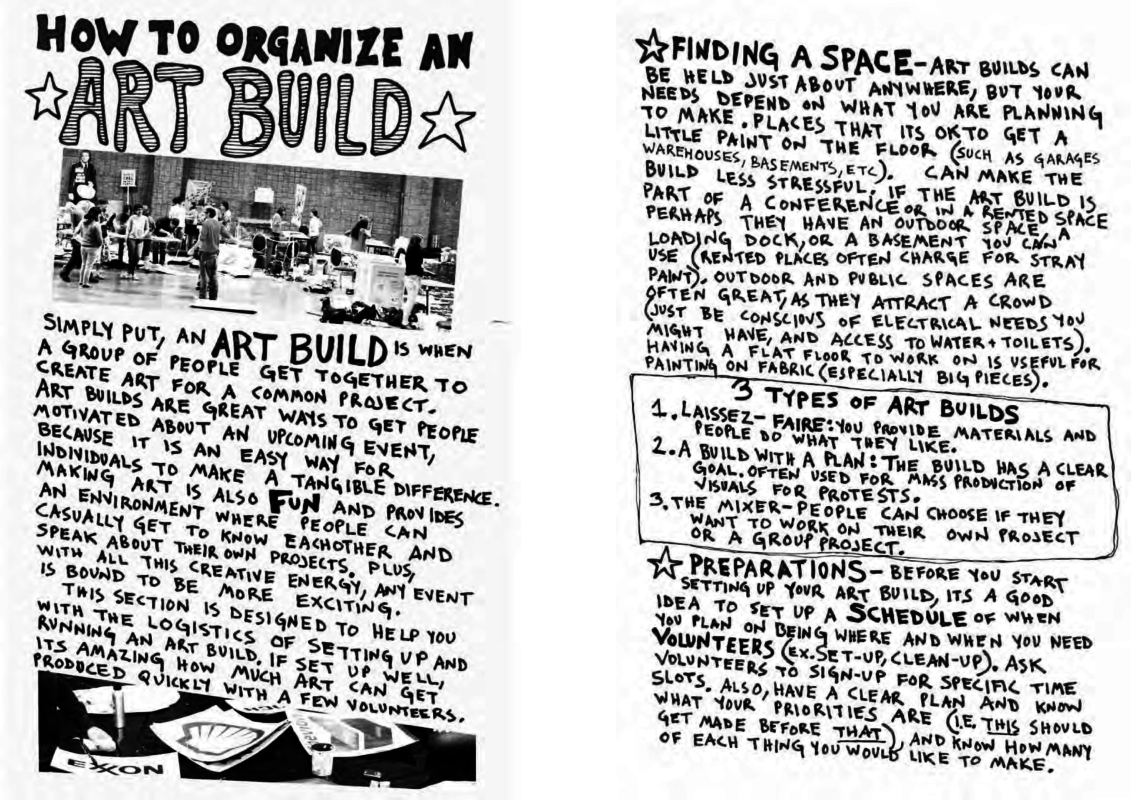 HOW TO ORGANIZE AN
ART BUILD
SIMPLY PUT, AN ART BUILD IS WHEN
A GROUP OF PEOPLE GET TOGETHER TO
CREATE ART FOR A COMMON PROJECT.
ART BUILDS ARE GREAT WAYS TO GET PEOPLE
MOTIVATED ABOUT AN UPCOMING EVENT,
BECAUSE IT IS AN EASY WAY FOR
INDIVIDUALS TO MAKE A TANGIBLE DIFFERENCE.
MAKING ART IS ALSO FUN AND PROVIDES
AN ENVIRONMENT WHERE PEOPLE CAN
CASUALLY GET TO KNOW EACHOTHER AND
SPEAK ABOUT THEIR OWN PROJECTS. PLUS,
WITH ALL THIS CREATIVE ENERGY, ANY EVENT
IS BOUND TO BE MORE EXCITING.
THIS SECTION IS DESIGNED TO HELP YOU
WITH THE LOGISTICS OF SETTING UP AND
RUNNING AN ART BUILD. IF SET UP WELL,
ITS AMAZING HOW MUCH ART CAN GET
PRODUCED QUICKLY WITH A FEW VOLUNTEERS.
EXXON
FINDING A SPACE - ART BUILDS CAN
BE HELD JUST ABOUT ANYWHERE, BUT YOUR
NEEDS DEPEND ON WHAT YOU ARE PLANNING
TO MAKE. PLACES THAT ITS OK TO GET A
LITTLE PAINT ON THE FLOOR (SUCH AS GARAGES
WAREHOUSES, BASEMENTS, ETC). CAN MAKE THE
BUILD LESS STRESSFUL. IF THE ART BUILD IS
PART OF A CONFERENCE OR IN A RENTED SPACE
PERHAPS THEY HAVE AN OUTDOOR SPACE, A
LOADING DOCK, OR A BASEMENT YOU CAN
USE (RENTED PLACES OFTEN CHARGE FOR STRAY
PAINT). OUTDOOR AND PUBLIC SPACES ARE
OFTEN GREAT, AS THEY ATTRACT A CROWD
(JUST BE CONSCIOUS OF ELECTRICAL NEEDS YOU
MIGHT HAVE, AND ACCESS TO WATER + TOILETS).
HAVING A FLAT FLOOR TO WORK ON IS USEFUL FOR
PAINTING ON FABRIC (ESPECIALLY BIG PIECES).
3 TYPES OF ART BUILDS
1. LAISSEZ-FAIRE: YOU PROVIDE MATERIALS AND
PEOPLE DO WHAT THEY LIKE.
2. A BUILD WITH A PLAN: THE BUILD HAS A CLEAR
GOAL. OFTEN USED FOR MASS PRODUCTION OF
VISUALS FOR PROTESTS.
3. THE MIXER - PEOPLE CAN CHOOSE IF THEY
WANT TO WORK ON THEIR OWN PROJECT
OR A GROUP PROJECT.
PREPARATIONS - BEFORE YOU START
SETTING UP YOUR ART BUILD, ITS A GOOD
IDEA TO SET UP A SCHEDULE OF WHEN
YOU PLAN ON BEING WHERE AND WHEN YOU NEED
VOLUNTEERS (EX. SET-UP, CLEAN-UP). ASK
VOLUNTEERS TO SIGN-UP FOR SPECIFIC TIME
SLOTS. ALSO, HAVE A CLEAR PLAN AND KNOW
WHAT YOUR PRIORITIES ARE (I.E. THIS SHOULD
GET MADE BEFORE THAT), AND KNOW HOW MANY
OF EACH THING YOU WOULD LIKE TO MAKE.